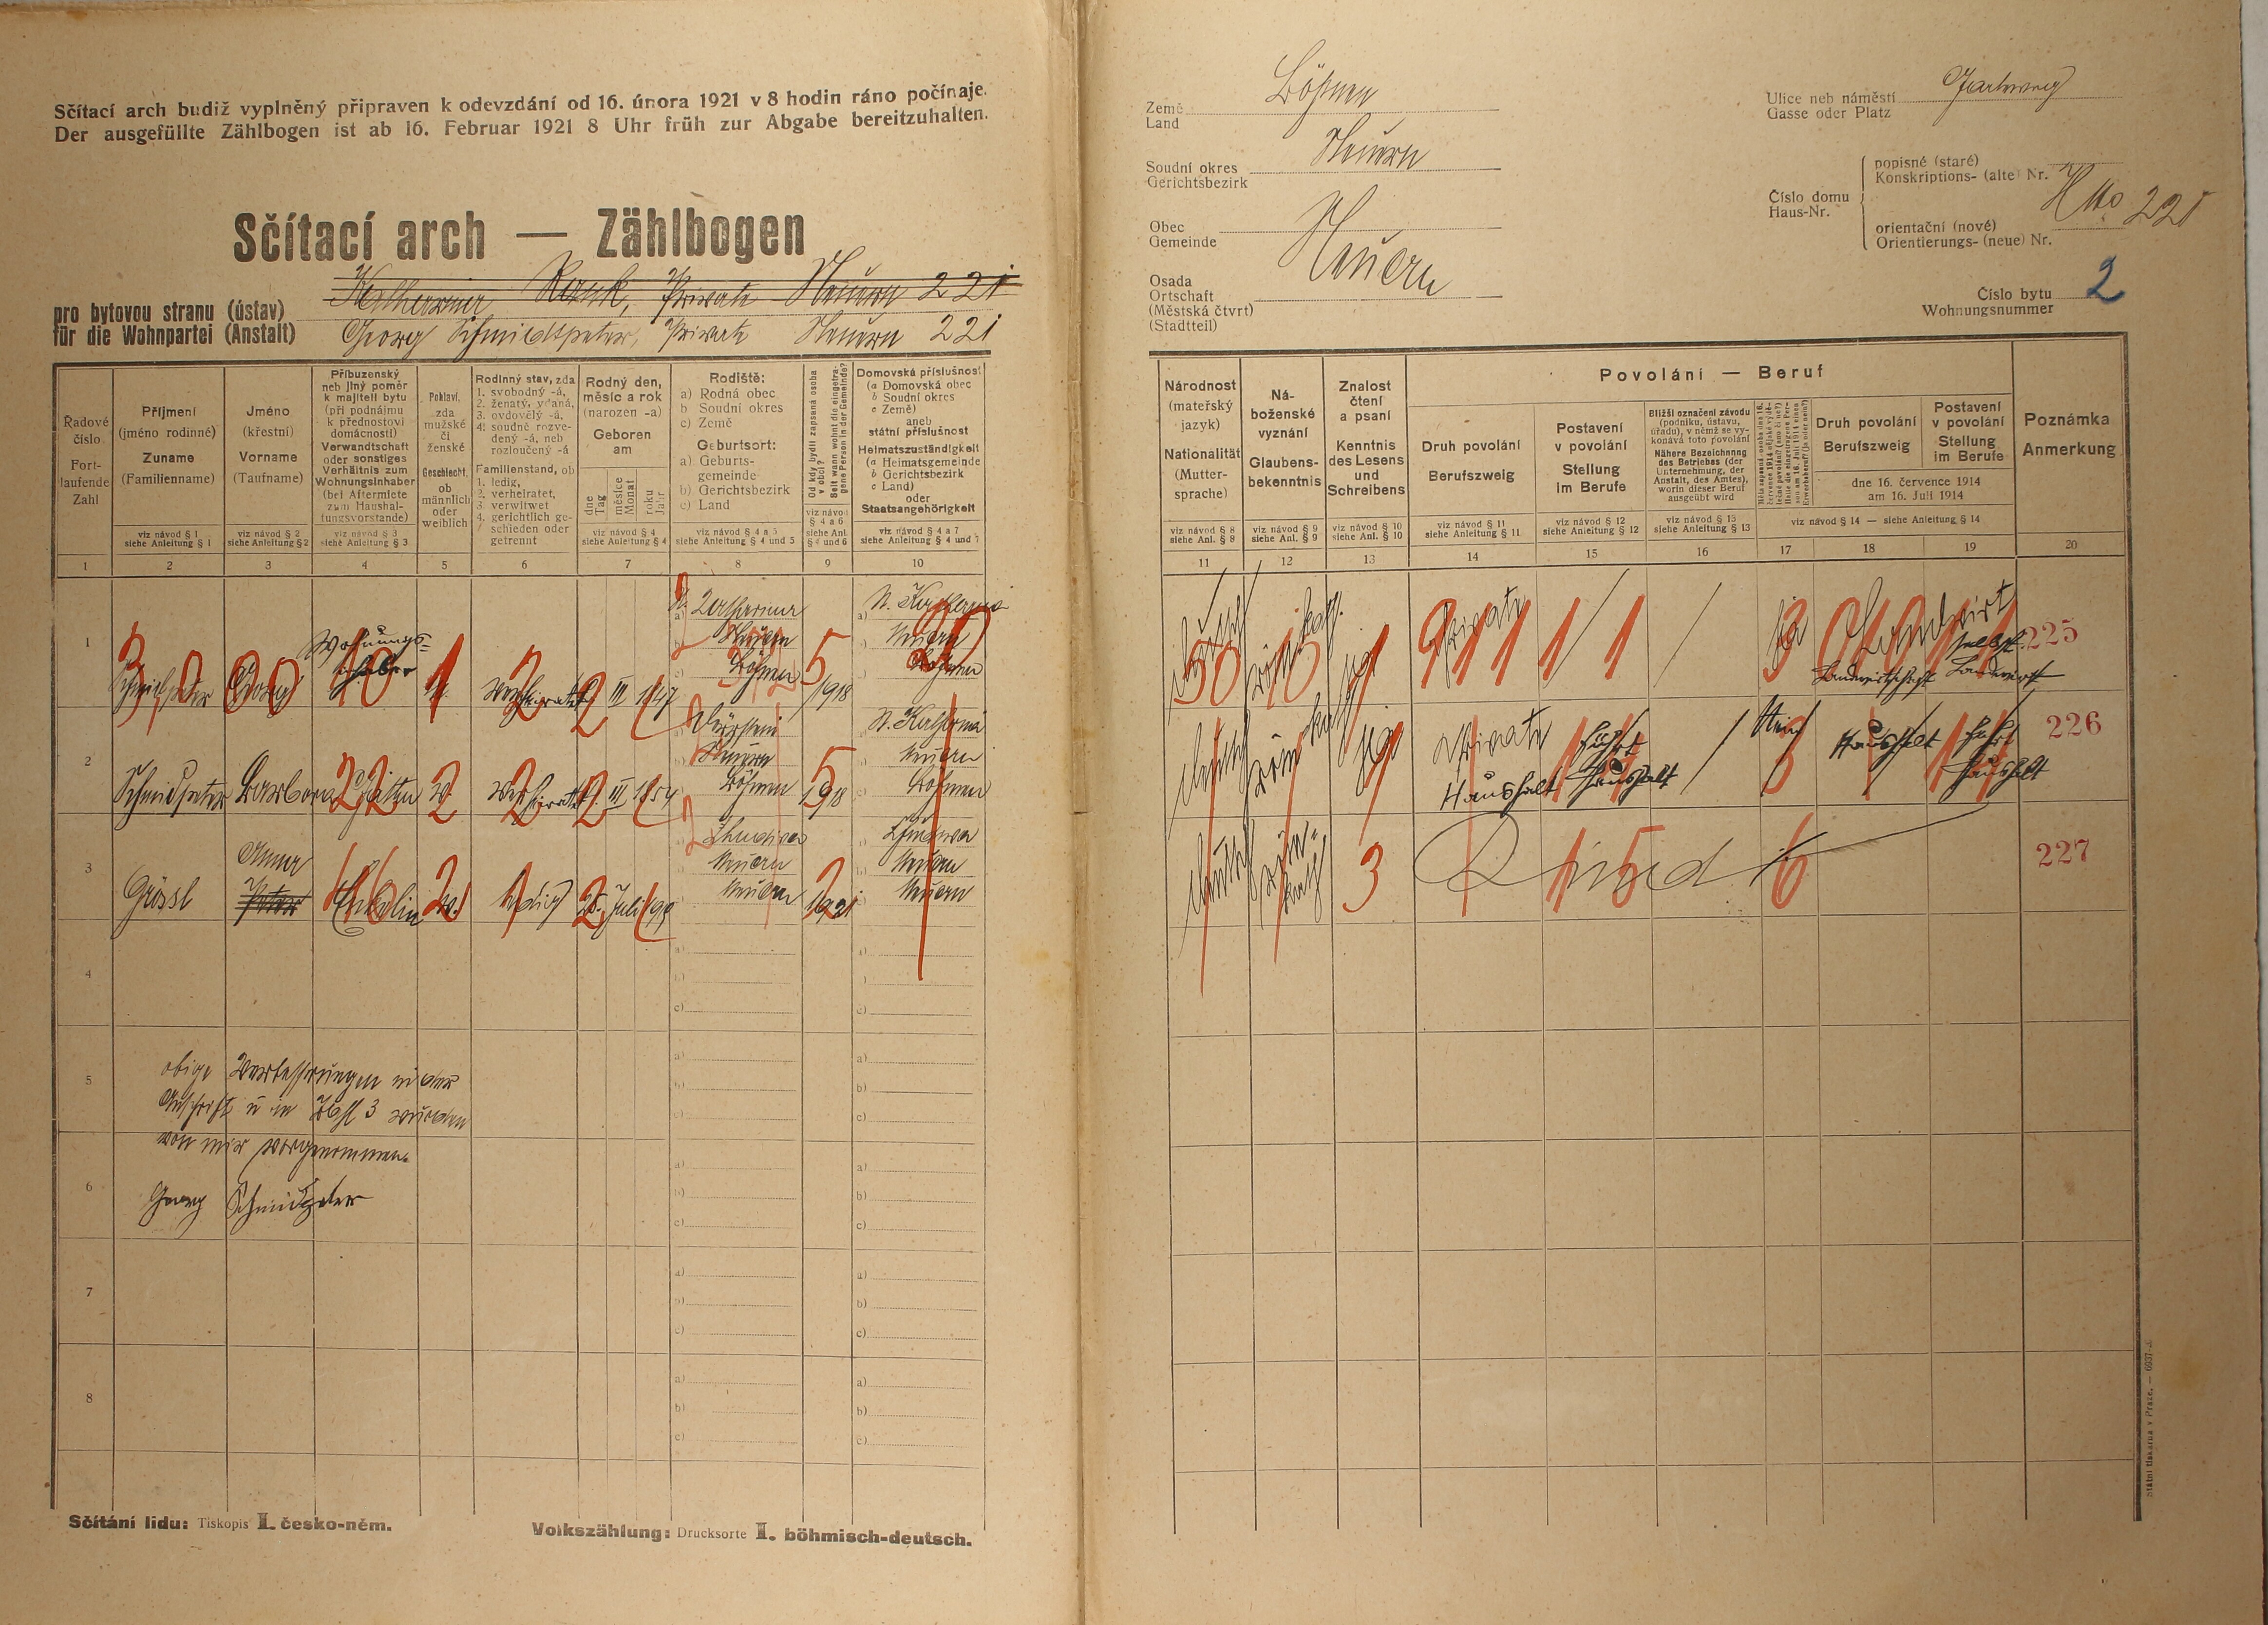 Sčítací arch budiž vyplněný připraven k odevzdání od 16. února 1921 v 8 hodin ráno počínaje.
Der ausgefüllte Zählbogen ist ab 16. Februar 1921 8 Uhr früh zur Abgabe bereitzuhalten.
Sčítací arch — Zählbogen
pro bytovou stranu (ústav)
für die Wohnpartei (Anstalt)
Katharina Rank, Private Neuern 221
Georg Schmidtpeter, Private Neuern 221
Řadové číslo
Fortlaufende Zahl
1
Příjmení
(jméno rodinné)
Zuname
(Familienname)
viz návod § 1
siehe Anleitung § 1
2
Jméno
(křestní)
Vorname
(Taufname)
viz návod § 2
siehe Anleitung § 2
3
Příbuzenský
neb jiný poměr
k majiteli bytu
(při podnájmu
k přednostovi
domácnosti)
Verwandtschaft
oder sonstiges
Verhältnis zum
Wohnungsinhaber
(bei Aftermiete
zum Haushaltungsvorstande)
viz návod § 3
siehe Anleitung § 3
4
Pohlaví,
zda
mužské
či
ženské
Geschlecht,
ob
männlich
oder
weiblich
5
Rodinný stav, zda
1. svobodný -á,
2. ženatý, vdaná,
3. ovdovělý -á,
4. soudně rozvedený -á, neb
rozloučený -á
Familienstand, ob
1. ledig,
2. verheiratet,
3. verwitwet
4. gerichtlich geschieden oder
getrennt
6
Rodný den,
měsíc a rok
(narozen -a)
Geboren
am
dne
Tag
měsíce
Monat
roku
Jahr
viz návod § 4
siehe Anleitung § 4
7
Rodiště:
a) Rodná obec
b) Soudní okres
c) Země
Geburtsort:
a) Geburtsgemeinde
b) Gerichtsbezirk
c) Land
viz návod § 4 a 5
siehe Anleitung § 4 und 5
8
Od kdy bydlí zapsaná osoba
v obci?
Seit wann wohnt die eingetragene Person in der Gemeinde?
viz návod
§ 4 a 6
siehe Anl.
§ 4 und 6
9
Domovská příslušnost
(a Domovská obec
b Soudní okres
c Země)
aneb
státní příslušnost
Heimatszuständigkeit
(a Heimatsgemeinde
b Gerichtsbezirk
c Land)
oder
Staatsangehörigkeit
viz návod § 4 a 7
siehe Anleitung § 4 und 7
10
1
Schmidtpeter Georg Wohnungsinhaber verheiratet 2 III 1847
St. Katharina
Neuern
Böhmen
1918
St. Katharina
Neuern
Böhmen
2
Schmidpeter Barbara Gattin W. verheiratet III 1854
Neuern
Böhmen
1918
St. Katharina
Neuern
Böhmen
3
Grössl Anna Enkelin W. ledig 25. Juli
Neuern
Neuern
1921
Neuern
Neuern
4
5
6
7
8
obige Verbesserungen in der
Anschrift u in 3 wurden
von mir vorgenommen.
Georg Schmidtpeter
Sčítání lidu: Tiskopis I. česko-něm.
Volkszählung: Drucksorte I. böhmisch-deutsch.
Země
Land
Böhmen
Soudní okres
Gerichtsbezirk
Neuern
Obec
Gemeinde
Neuern
Osada
Ortschaft
(Městská čtvrt)
(Stadtteil)
Ulice neb náměstí
Gasse oder Platz
Číslo domu
Haus-Nr.
popisné (staré)
Konskriptions- (alte) Nr.
orientační (nové)
Orientierungs- (neue) Nr.
221
Číslo bytu
Wohnungsnummer
2
Národnost
(mateřský
jazyk)
Nationalität
(Muttersprache)
viz návod § 8
siehe Anl. § 8
11
Náboženské
vyznání
Glaubensbekenntnis
viz návod § 9
siehe Anl. § 9
12
Znalost
čtení
a psaní
Kenntnis
des Lesens
und
Schreibens
viz návod § 10
siehe Anl. § 10
13
Povolání — Beruf
Druh povolání
Berufszweig
viz návod § 11
siehe Anleitung § 11
14
Postavení
v povolání
Stellung
im Berufe
viz návod § 12
siehe Anleitung § 12
15
Bližší označení závodu
(podniku, ústavu,
úřadu), v němž se vykonává toto povolání
Nähere Bezeichnung
des Betriebes (der
Unternehmung, der
Anstalt, des Amtes),
worin dieser Beruf
ausgeübt wird
viz návod § 13
siehe Anleitung § 13
16
17
Druh povolání
Berufszweig
18
Postavení
v povolání
Stellung
im Berufe
19
dne 16. července 1914
am 16. Juli 1914
viz návod § 14 — siehe Anleitung § 14
Poznámka
Anmerkung
20
deutsch röm. kath. ja Private / / ja Landwirt
Landwirtschaft Landwirt
225
deutsch röm kath ja Private führt / Nein Haushalt führt
Haushalt Haushalt Haushalt
226
deutsch röm. kath 3 Kind
227
Státní tiskárna v Praze. — 6937-2